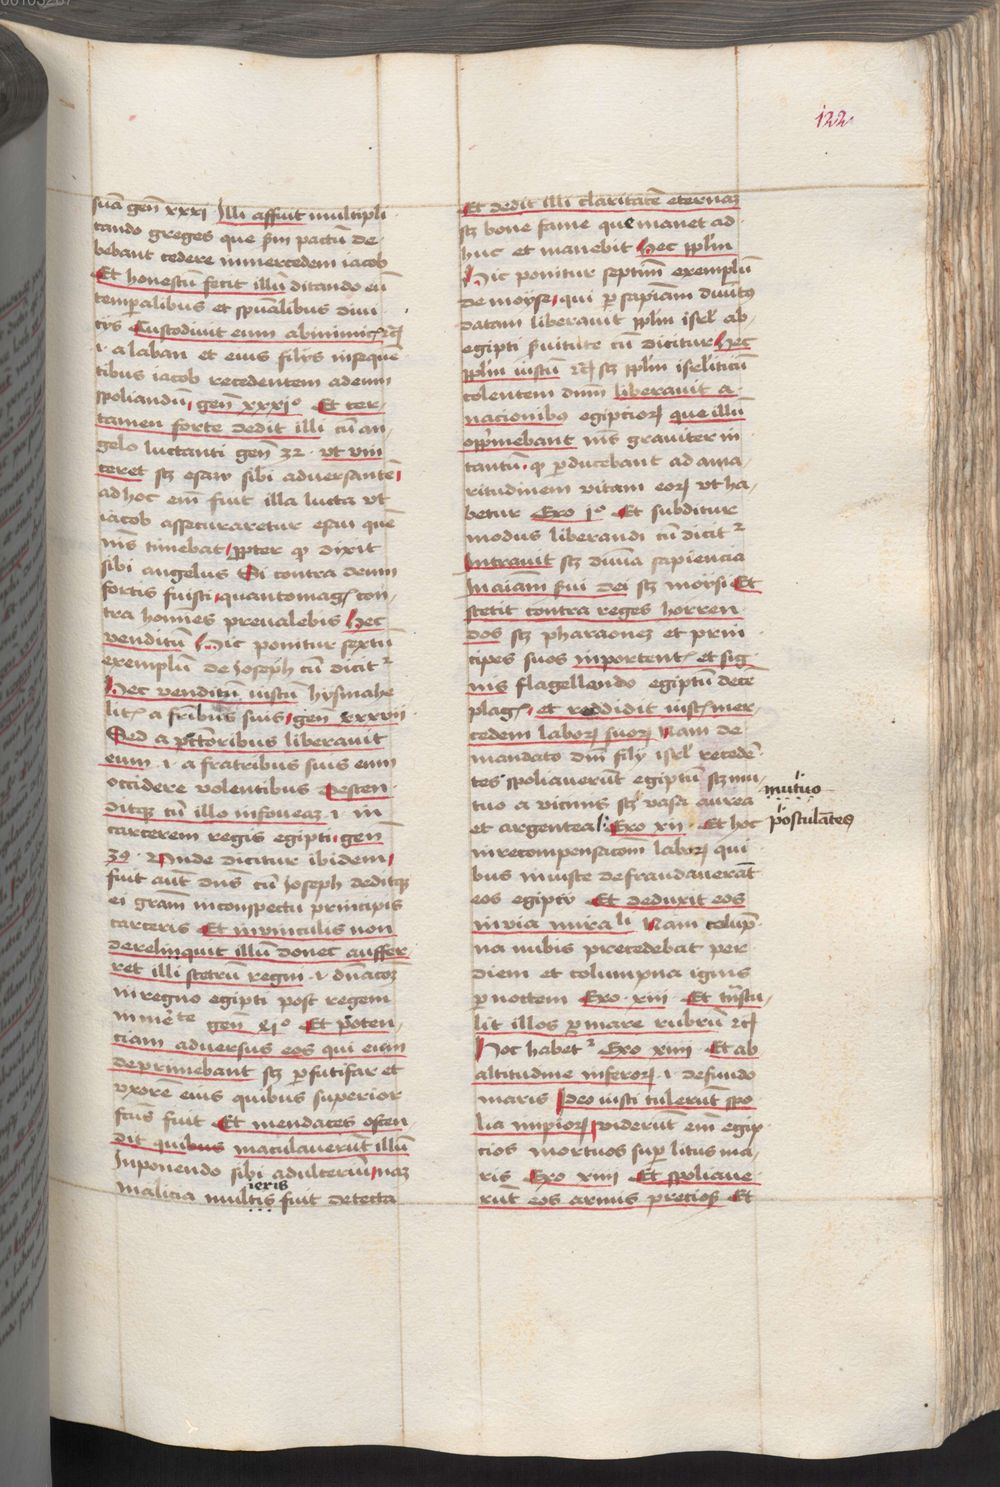 122
suā gen̄ xxxi Illi affuit multipli
cando greges que scdm pactū de
bebant cedere in mercedem iacob
Et honestū fecit illū ditando eū
temporalibus et spūalibus divi
tijs Custodiuit eum ab inimicis
.i. a laban et eius filijs inseque
tibus iacob recedentem ad eum
spoliandū gen̄ xxxjo Et cer
tamen forte dedit illi cū an
gelo luctanti gen̄ 32 ut vin
ceret sz esaw sibi adversantē
ad hoc em̄ fuit illa lucta vt
iacob assecuraretur esau quē
nīs timebat ppter qd dixit
sibi angelus Si contra deum
fortis fuisti quantomagis con
tra homines prevalebis Hec
venditū Hic ponitur sextū
exemplū de Joseph cū dicit
Hec venditū iustū hysmahe
litis a fribus suis gen xxxvii
Sed a pctoribus liberavit
eum .i. a fratribus suis eum
occidere volentibus Descen
ditqz cū illo in foveaz .i. in
carcerem regis egipti gen̄
39 Unde dicitur ibidem
fuit aut dns̄ cū Joseph deditqz
ei gram̄ in conspectu principis
carceris Et in vinculis non
derelinquit illū donec affer
ret illi sceptrū regni .i. dn̄acoz
in regno egipti post regem
inme te gen̄ xljo Et poten
ciam adversus eos qui eum
deprimebant sz putifar et
vxorē eius quibus superior
fcūs fuit Et mendaces osten
dit quibus maculaverūt illū
Inponendo sibi adulteriū naz
ieris
malicia multis fuit detecta
Et dedit illi claritatē eternaz
sz bone fame que manet ad
huc et manebit Hec pplm
Hic ponitur septimū exemplū
de moyse qui p sapiam divitus
datam liberavit pplm isrl ab
egipti servitute cū dicitur Hec
pplm iustū etc sz pplm isrliticū
colentem dnm liberavit a
nacionibus egiptiorz que illū
opprimebant nīs graviter in
tantū qd pducebant ad ama
ritudinem vitam eorz vt ha
betur Exo jo Et subditur
modus liberandi cū dicit
Intravit sz divina sapiencia
In aiam servi dei sz moysi Et
stetit contra reges horren
dos sz pharaonez et prin
cipes suos in portentis et sig
nis flagellando egiptū dece
plagis et reddidit iustis mer
cedem laborz suorz Nam de
mandato dni filij isrl recedē
tes spoliaverūt egiptū sz mu
mutuo
tuo a vicinis sz vasa aurea
postulātes
et argentea Exo xij Et hoc
in recompensacom laborz qui
bus iniuste defraudaverāt
eos egiptij Et deduxit eos
in via mirali Nam colup
na nubis precedebat per
diem et columpna ignis
p nottem Exo xiii Et trāstu
lit illos p mare rubrū etc
Hoc habet Exo xiiii Et ab
altitudine inferorz .i. de fundo
maris Ideo iusti tulerūt spo
lia impiorz viderūt em̄ egip
cios mortuos sup litus ma
ris Exo xiiii Et spoliave
rūt eos armis preciosis Et